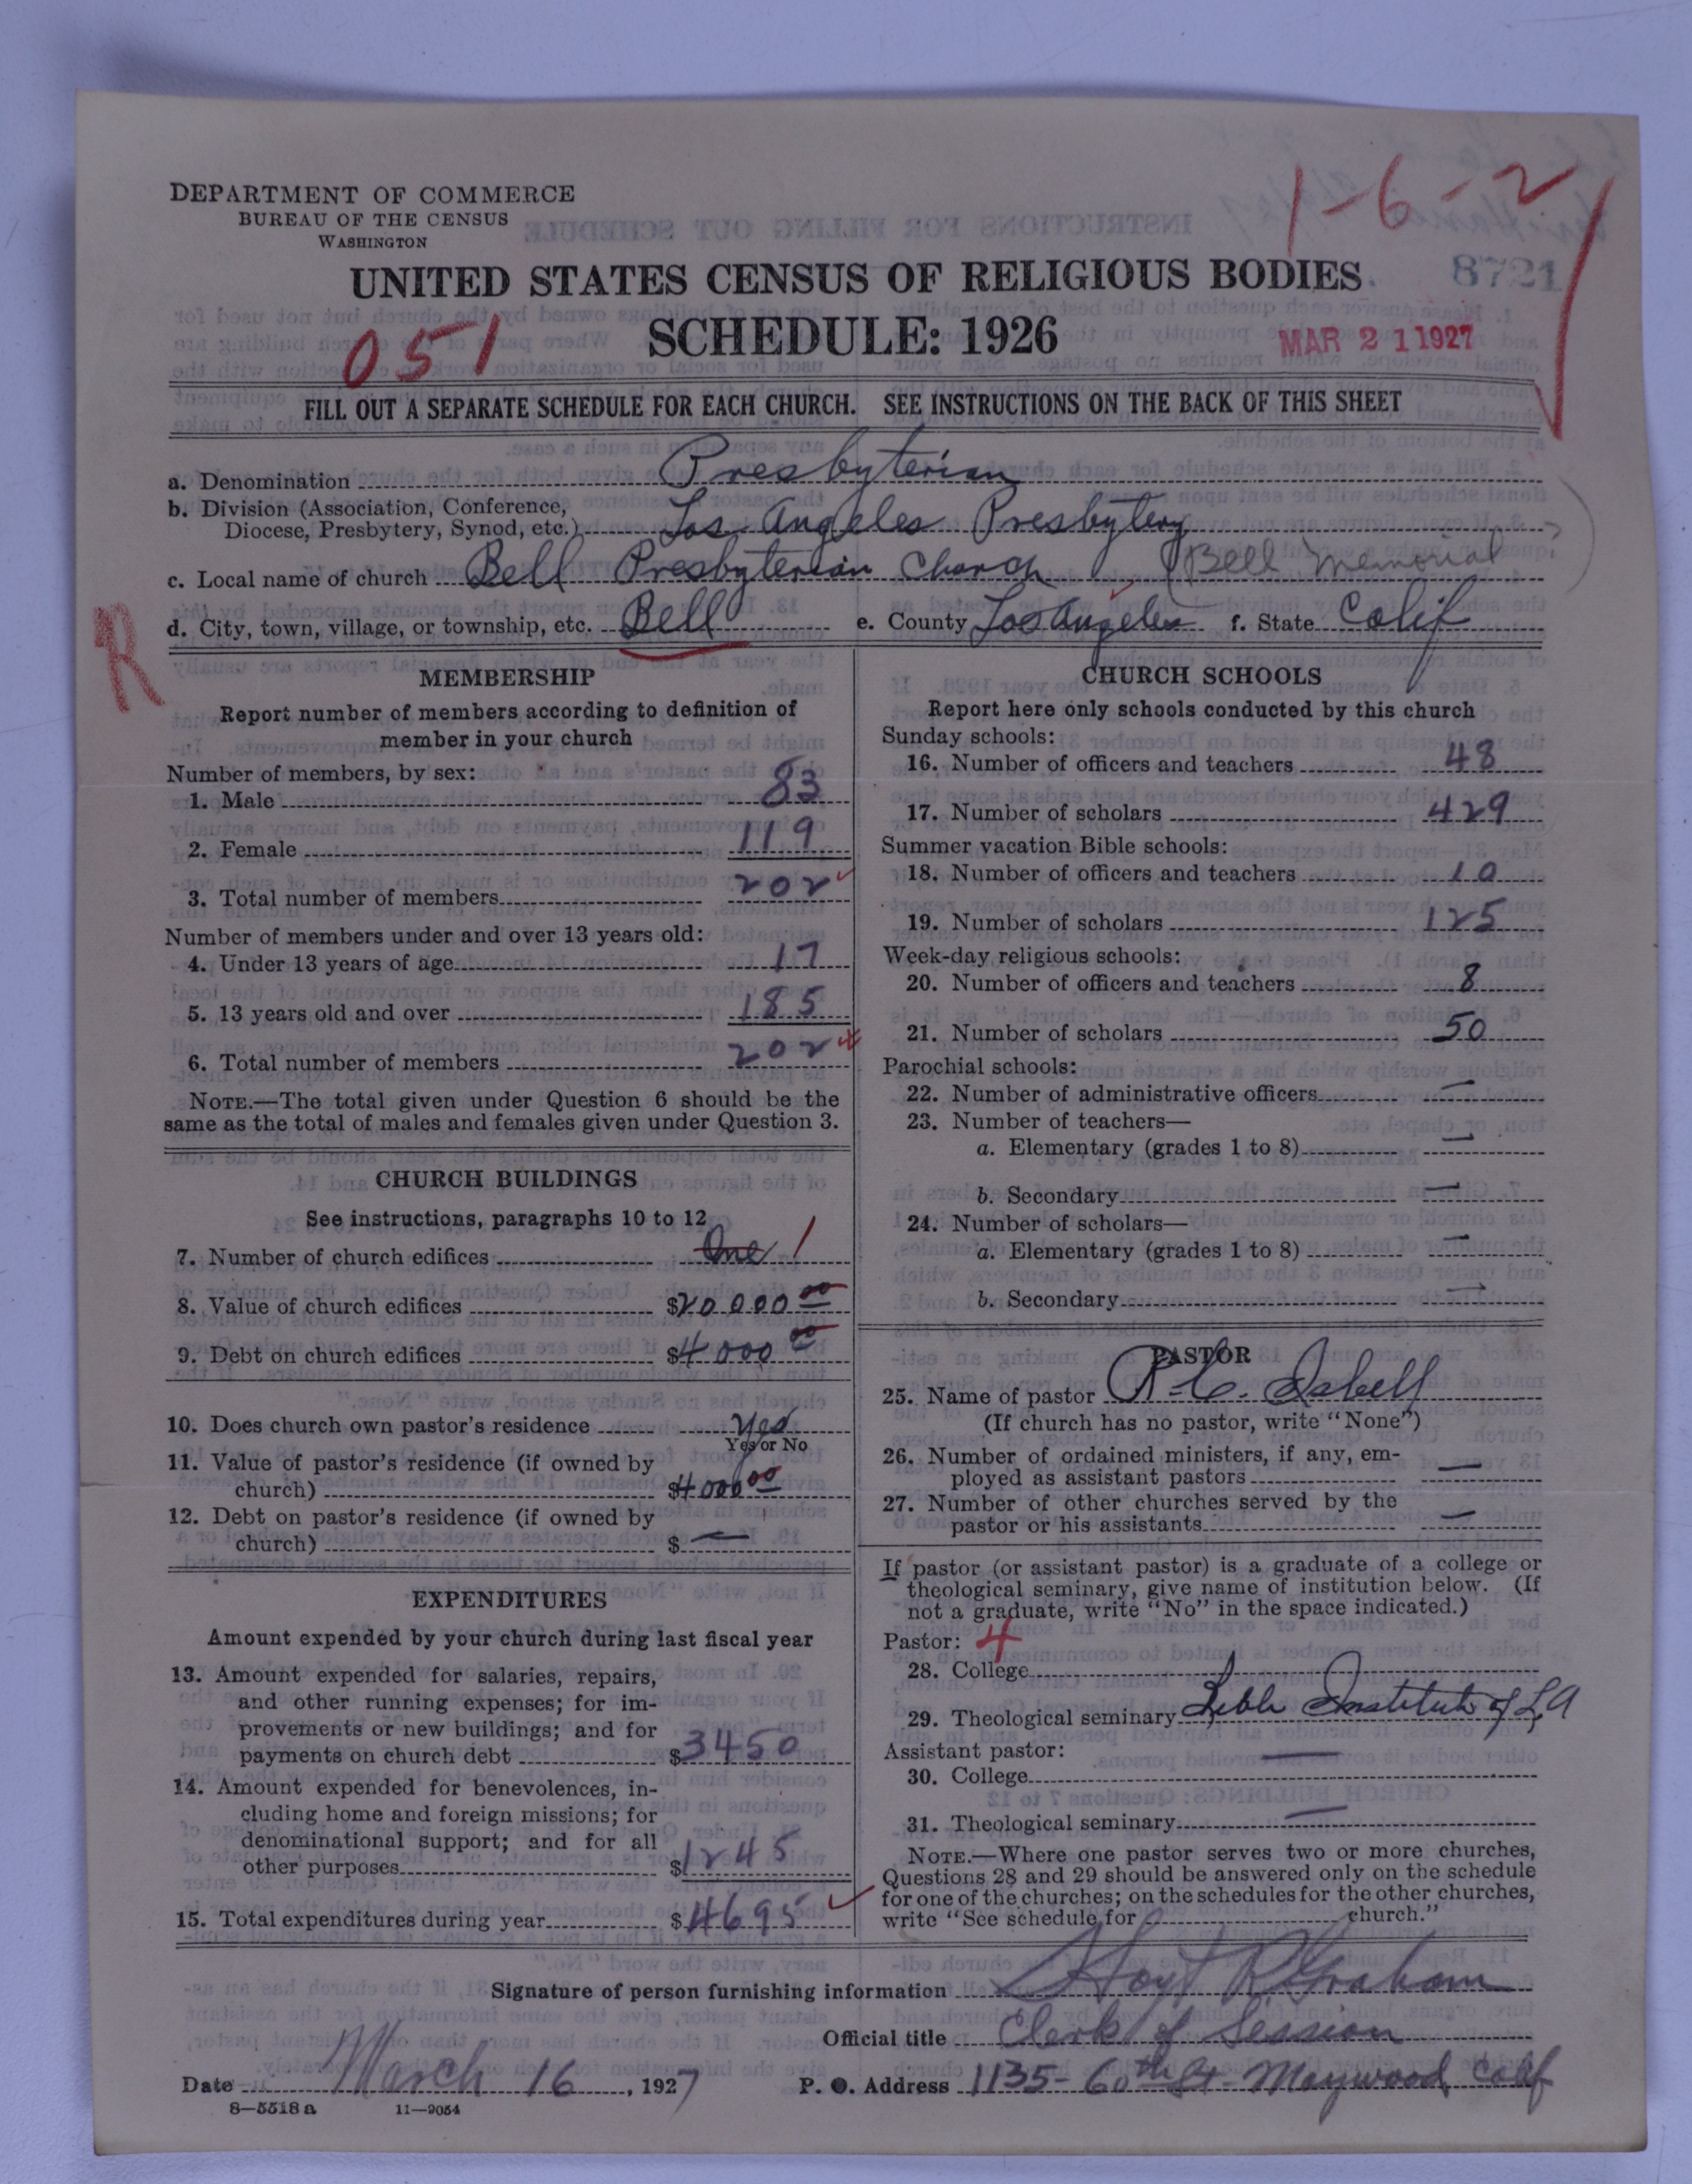 1-6-2
DEPARTMENT OF COMMERCE
BUREAU OF THE CENSUS
WASHINGTON
UNITED STATES CENSUS OF RELIGIOUS BODIES
8721
051
SCHEDULE: 1926
MAR 21 1927
FILL OUT A SEPARATE SCHEDULE FOR EACH CHURCH. SEE INSTRUCTIONS ON THE BACK OF THIS SHEET
a. Denomination Presbyterian
b. Division (Association, Conference,
Diocese, Presbytery, Synod, etc.) Los Angeles Presbytery
c. Local name of church Bell Presbyterian Church (Bell Memorial)
R
d. City, town, village, or township, etc. Bell e. County Los Angeles f. State Calif
MEMBERSHIP
Report number of members according to definition of
member in your church
Number of members, by sex:
1. Male 83
2. Female 119
3. Total number of members 202
Number of members under and over 13 years old:
4. Under 13 years of age 17
5. 13 years old and over 185
6. Total number of members 202
NOTE.—The total given under Question 6 should be the
same as the total of males and females given under Question 3.
CHURCH BUILDINGS
See instructions, paragraphs 10 to 12
7. Number of church edifices One 1
8. Value of church edifices $20000 00
9. Debt on church edifices $4000 00
10. Does church own pastor's residence Yes
Yes or No
11. Value of pastor's residence (if owned by
church) $4000 00
12. Debt on pastor's residence (if owned by
church) $ —
EXPENDITURES
Amount expended by your church during last fiscal year
13. Amount expended for salaries, repairs,
and other running expenses; for im-
provements or new buildings; and for
payments on church debt $3450
14. Amount expended for benevolences, in-
cluding home and foreign missions; for
denominational support; and for all
other purposes $1245
15. Total expenditures during year $4695
CHURCH SCHOOLS
Report here only schools conducted by this church
Sunday schools:
16. Number of officers and teachers 48
17. Number of scholars 429
Summer vacation Bible schools:
18. Number of officers and teachers 10
19. Number of scholars 125
Week-day religious schools:
20. Number of officers and teachers 8
21. Number of scholars 50
Parochial schools:
22. Number of administrative officers —
23. Number of teachers—
a. Elementary (grades 1 to 8) —
b. Secondary —
24. Number of scholars—
a. Elementary (grades 1 to 8) —
b. Secondary —
PASTOR
25. Name of pastor R. C. Isbell
(If church has no pastor, write "None")
26. Number of ordained ministers, if any, em-
ployed as assistant pastors —
27. Number of other churches served by the
pastor or his assistants —
If pastor (or assistant pastor) is a graduate of a college or
theological seminary, give name of institution below. (If
not a graduate, write "No" in the space indicated.)
Pastor: 4
28. College
29. Theological seminary Bible Institute of L A
Assistant pastor:
30. College —
31. Theological seminary —
NOTE.—Where one pastor serves two or more churches,
Questions 28 and 29 should be answered only on the schedule
for one of the churches; on the schedules for the other churches,
write "See schedule for church."
Signature of person furnishing information Hoyt R Graham
Official title Clerk of Session
Date March 16, 1927 P. O. Address 1135- 60th St- Maywood, Calif
8—5518 a 11—9054